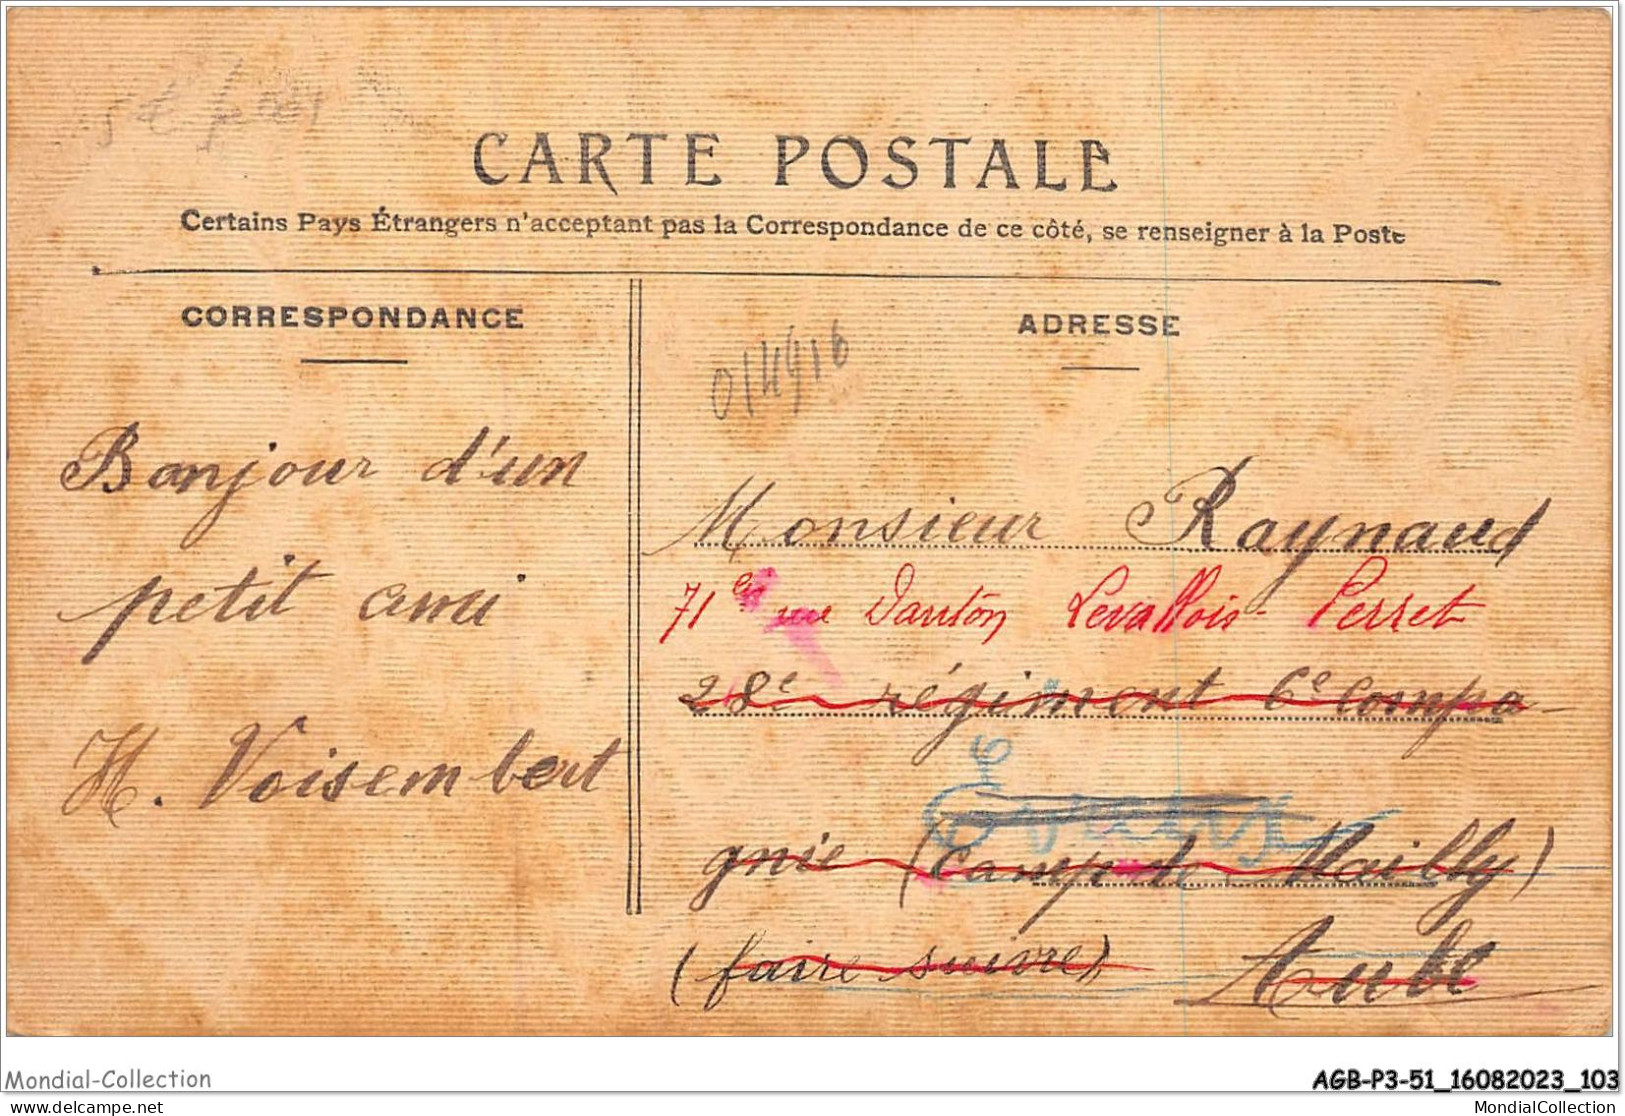 CARTE POSTALE
Certains Pays Étrangers n'acceptant pas la Correspondance de ce côté, se renseigner à la Poste
CORRESPONDANCE
ADRESSE
014916
Bonjour d'un
petit ami
H. Voisembert
Monsieur Raynaud
71 rue Danton Levallois-Perret
28e régiment 6e Compa-
gnie (Camp de Mailly)
(faire suivre) Aube
Mondial-Collection
AGB-P3-51_16082023_103
delcampe.net
MondialCollection